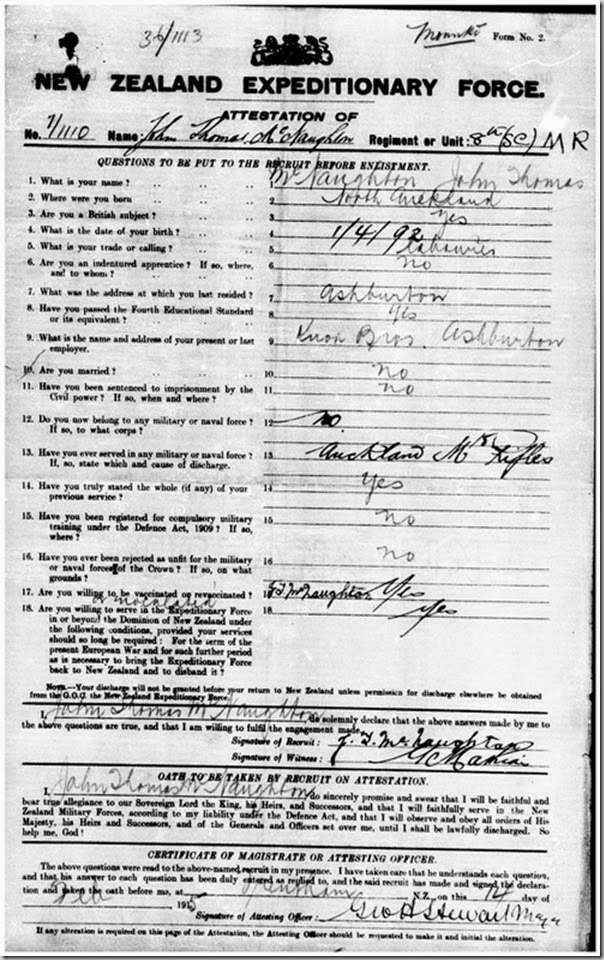 36/1113
Mounted Form No. 2.
NEW ZEALAND EXPEDITIONARY FORCE.
ATTESTATION OF
No. 7/1110 Name: John Thomas McNaughton Regiment or Unit: 8th (SC) M R
QUESTIONS TO BE PUT TO THE RECRUIT BEFORE ENLISTMENT.
1. What is your name? McNaughton John Thomas
2. Where were you born 2 North Auckland
3. Are you a British subject? 3 Yes
4. What is the date of your birth? 4 1/4/92
5. What is your trade or calling? 5
6. Are you an indentured apprentice? If so, where, 6 No
and to whom?
7. What was the address at which you last resided? 7 Ashburton
8. Have you passed the Fourth Educational Standard 8 Yes
or its equivalent?
9. What is the name and address of your present or last 9 Knox Bros. Ashburton
employer.
10. Are you married? 10. No
11. Have you been sentenced to imprisonment by the 11. No
Civil power? If so, when and where?
12. Do you now belong to any military or naval force? 12 No
If so, to what corps?
13. Have you ever served in any military or naval force? 13. Auckland Mtd Rifles
If, so, state which and cause of discharge.
14. Have you truly stated the whole (if any) of your 14 Yes
previous service?
15. Have you been registered for compulsory military 15 No
training under the Defence Act, 1909? If so,
where?
16. Have you ever been rejected as unfit for the military 16 No
or naval forces of the Crown? If so, on what
grounds?
17. Are you willing to be vaccinated or revaccinated? J. T. McNaughton Yes
or inoculated
18. Are you willing to serve in the Expeditionary Force 18 Yes
in or beyond the Dominion of New Zealand under
the following conditions, provided your services
should so long be required: For the term of the
present European War and for such further period
as is necessary to bring the Expeditionary Force
back to New Zealand and to disband it?
NOTE.—Your discharge will not be granted before your return to New Zealand unless permission for discharge elsewhere be obtained
from the G.O.C. the New Zealand Expeditionary Force.
I, John Thomas McNaughton do solemnly declare that the above answers made by me to
the above questions are true, and that I am willing to fulfil the engagement made.
Signature of Recruit: J. T. McNaughton
Signature of Witness:
OATH TO BE TAKEN BY RECRUIT ON ATTESTATION.
I, John Thomas McNaughton do sincerely promise and swear that I will be faithful and
bear true allegiance to our Sovereign Lord the King, his Heirs, and Successors, and that I will faithfully serve in the New
Zealand Military Forces, according to my liability under the Defence Act, and that I will observe and obey all orders of His
Majesty, his Heirs and Successors, and of the Generals and Officers set over me, until I shall be lawfully discharged. So
help me, God!
CERTIFICATE OF MAGISTRATE OR ATTESTING OFFICER.
The above questions were read to the above-named recruit in my presence. I have taken care that he understands each question,
and that his answer to each question has been duly entered as replied to, and the said recruit has made and signed the declara-
tion and taken the oath before me, at Trentham N.Z. on this 14 day of
Feb 1915
Signature of Attesting Officer: Geo H Stewart Major
If any alteration is required on this page of the Attestation, the Attesting Officer should be requested to make it and initial the alteration.